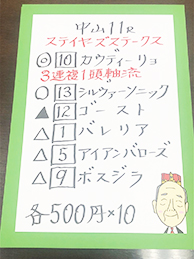 中山11R
ステイヤーズステークス
◎10 カウディーリョ
3連複1頭軸流
○13 シルヴァーソニック
▲12 ゴースト
△1 バレリア
△5 アイアンバローズ
△9 ボスジラ
各500円×10